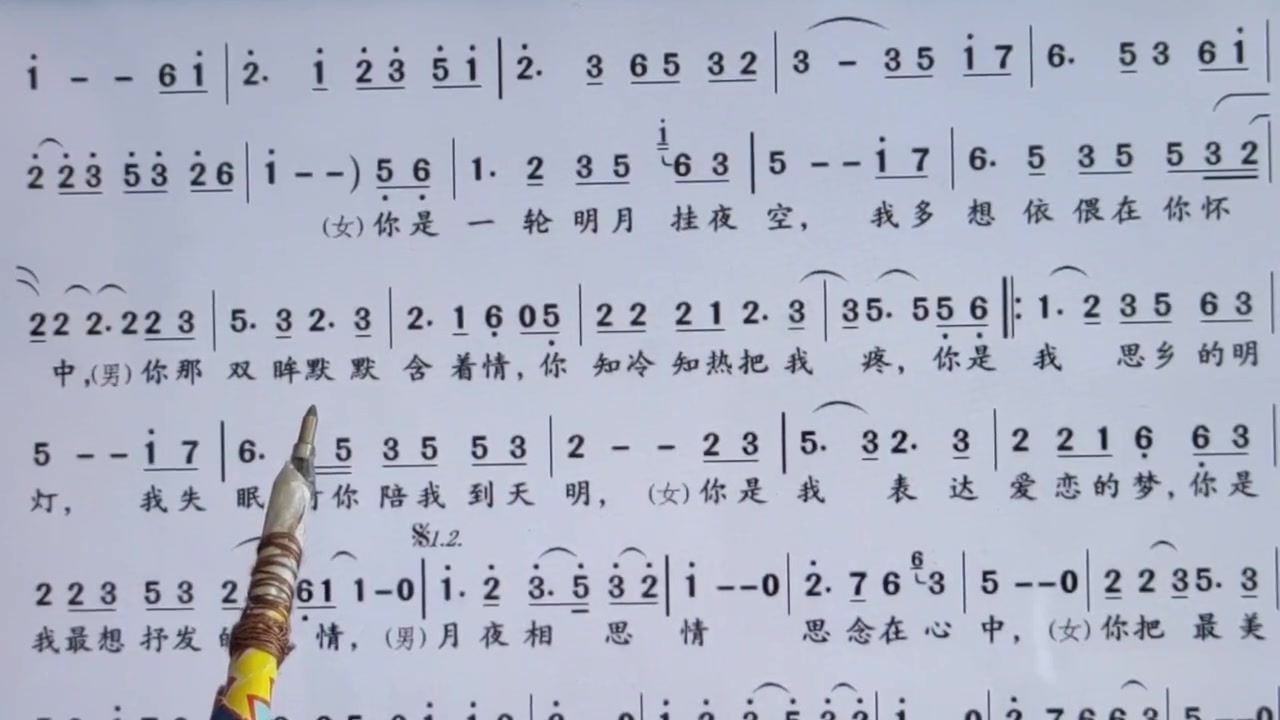 1̇ - - 6 1̇ | 2̇. 1̇ 2̇ 3̇ 5̇ 1̇ | 2̇. 3 6 5 3 2 | 3 - 3 5 1̇ 7 | 6. 5 3 6 1̇ |
2̇ 2̇ 3̇ 5̇ 3̇ 2̇ 6 | 1̇ - -) 5̣ 6̣ | 1. 2 3 5 1̇ 6 3 | 5 - - 1̇ 7 | 6. 5 3 5 5 3 2 |
(女)你是 一 轮 明月 挂夜 空, 我多 想 依 偎在 你怀
2 2 2. 2 2 3 | 5. 3 2. 3 | 2. 1 6̣ 0 5̣ | 2 2 2 1 2. 3 | 3 5. 5 5̣ 6̣ ‖: 1. 2 3 5 6 3 |
中,(男)你那 双 眸默 默 含 着情,你 知冷 知热把 我 疼, 你是 我 思乡 的明
5 - - 1̇ 7 | 6. 5 3 5 5 3 | 2 - - 2 3 | 5. 3 2. 3 | 2 2 1 6̣ 6̣ 3 |
灯, 我失 眠 你 陪我 到天 明, (女)你是 我 表 达 爱 恋的 梦,你 是
𝄋1.2.
2 2 3 5 3 2 6̣ 1 1 - 0 | 1̇. 2̇ 3̇. 5̇ 3̇ 2̇ | 1̇ - - 0 | 2̇. 7 6 6 3 | 5 - - 0 | 2 2 3 5. 3
我最想 抒发 情, (男)月 夜 相 思 情 思 念在 心 中, (女)你把 最 美